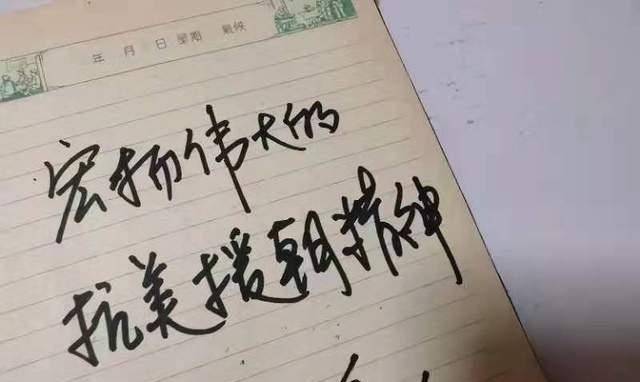 年 月 日 星期 气候
宏扬伟大的
抗美援朝精神